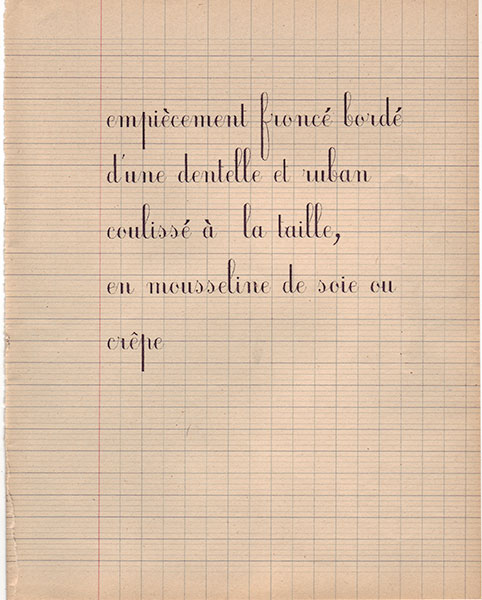 empiècement froncé bordé
d'une dentelle et ruban
coulissé à la taille,
en mousseline de soie ou
crêpe